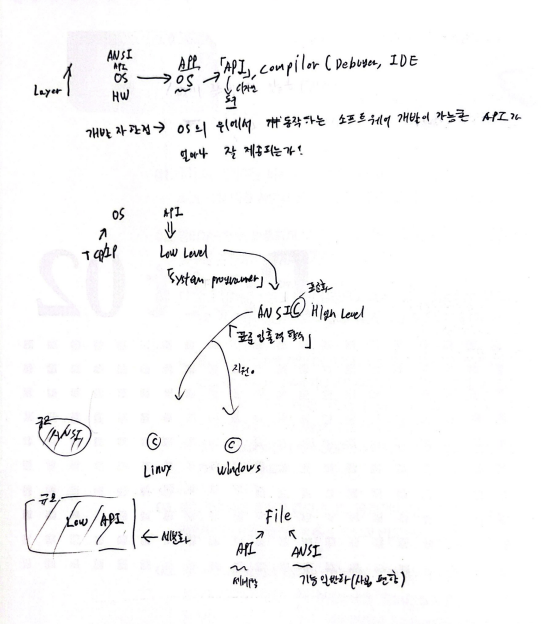 ANSI
API
OS
HW
Layer
APP
OS
「API」, compilor (Debuger, IDE
디자인
도구
개발자 관점 → OS의 위에서 동작하는 소프트웨어 개발이 가능큰 API가
얼마나 잘 제공되는가!
OS API
TCP/IP Low Level
「System programer」
표준화
ANSI C High Level
표준 입출력 탐식」
지원。
규모
ANSI
C C
Linux windows
규모
Low API
← 세분화
File
API ANSI
세세함 기능 일반화 (사용 편함)